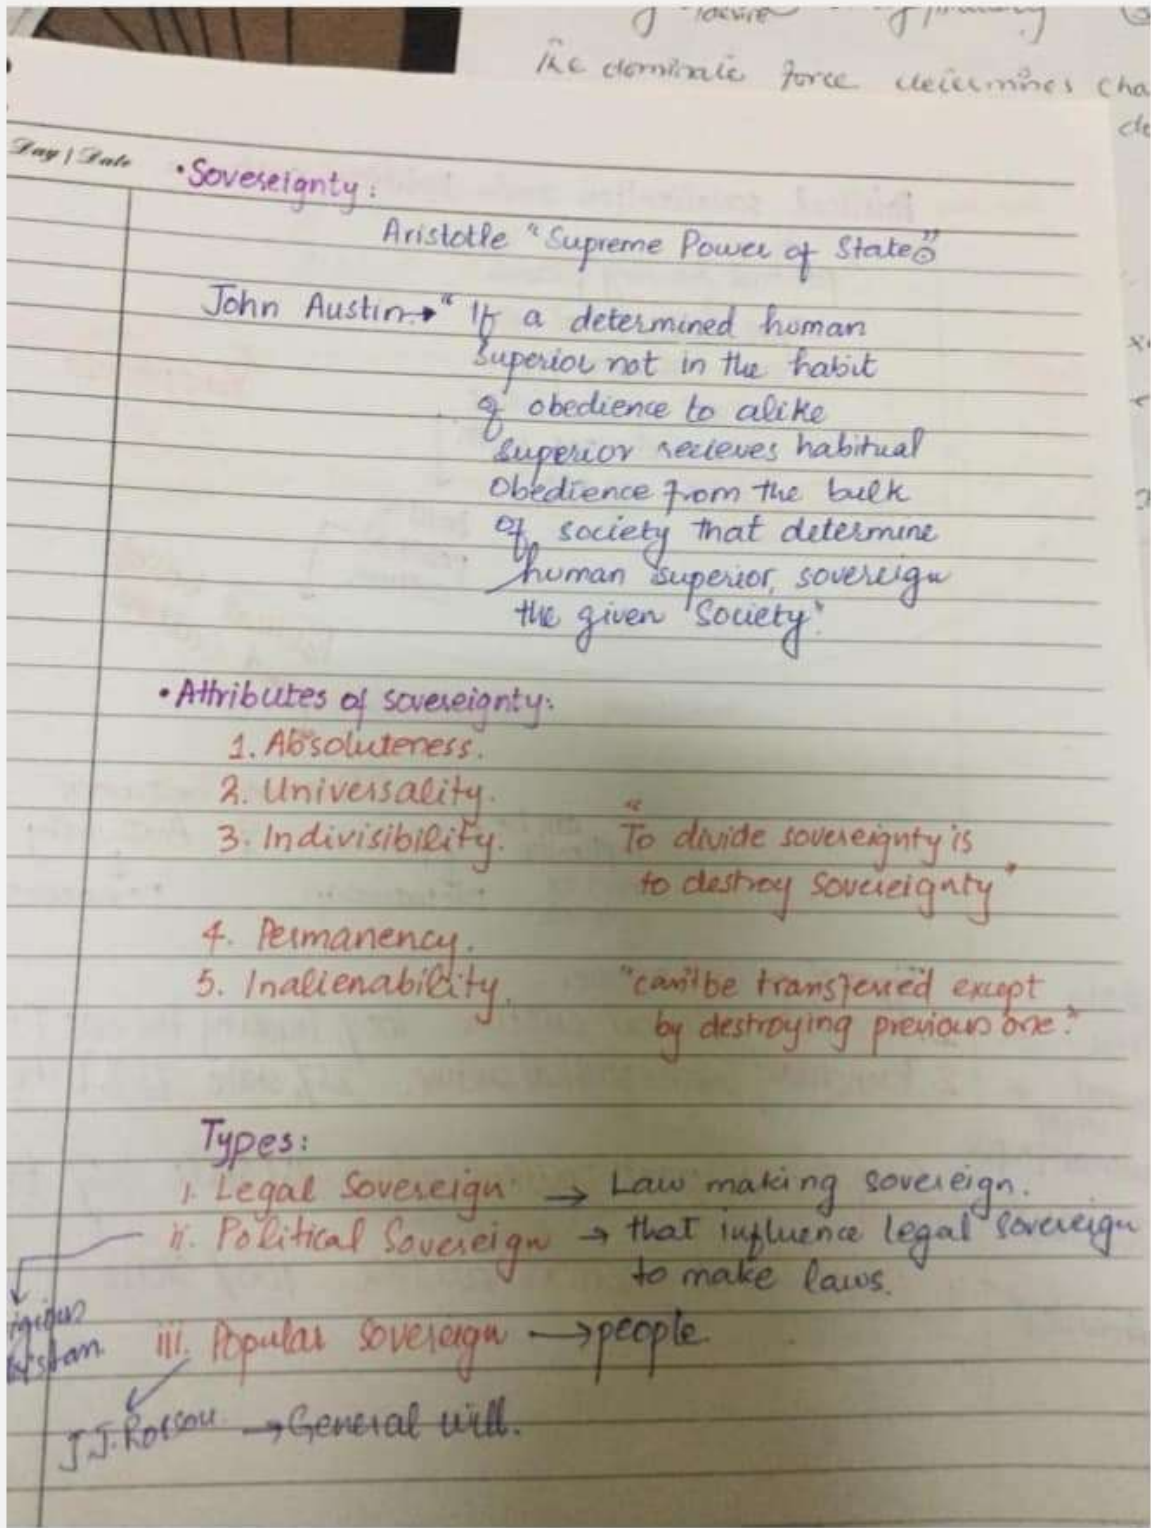 The dominate force determines cha
de
Day / Date
• Sovereignty:
Aristotle "Supreme Power of State"
John Austin → "If a determined human
superior not in the habit
of obedience to alike
superior recieves habitual
Obedience from the bulk
of society that determine
human superior, sovereign
the given Society"
• Attributes of sovereignty:
1. Absoluteness.
2. Universality.
3. Indivisibility. "To divide sovereignty is
to destroy sovereignty"
4. Permanency.
5. Inalienability. "can't be transferred except
by destroying previous one."
Types:
i. Legal Sovereign → Law making sovereign.
ii. Political Sovereign → that influence legal sovereign
to make laws.
iii. Popular Sovereign → people.
J.J. Rossou → General will.